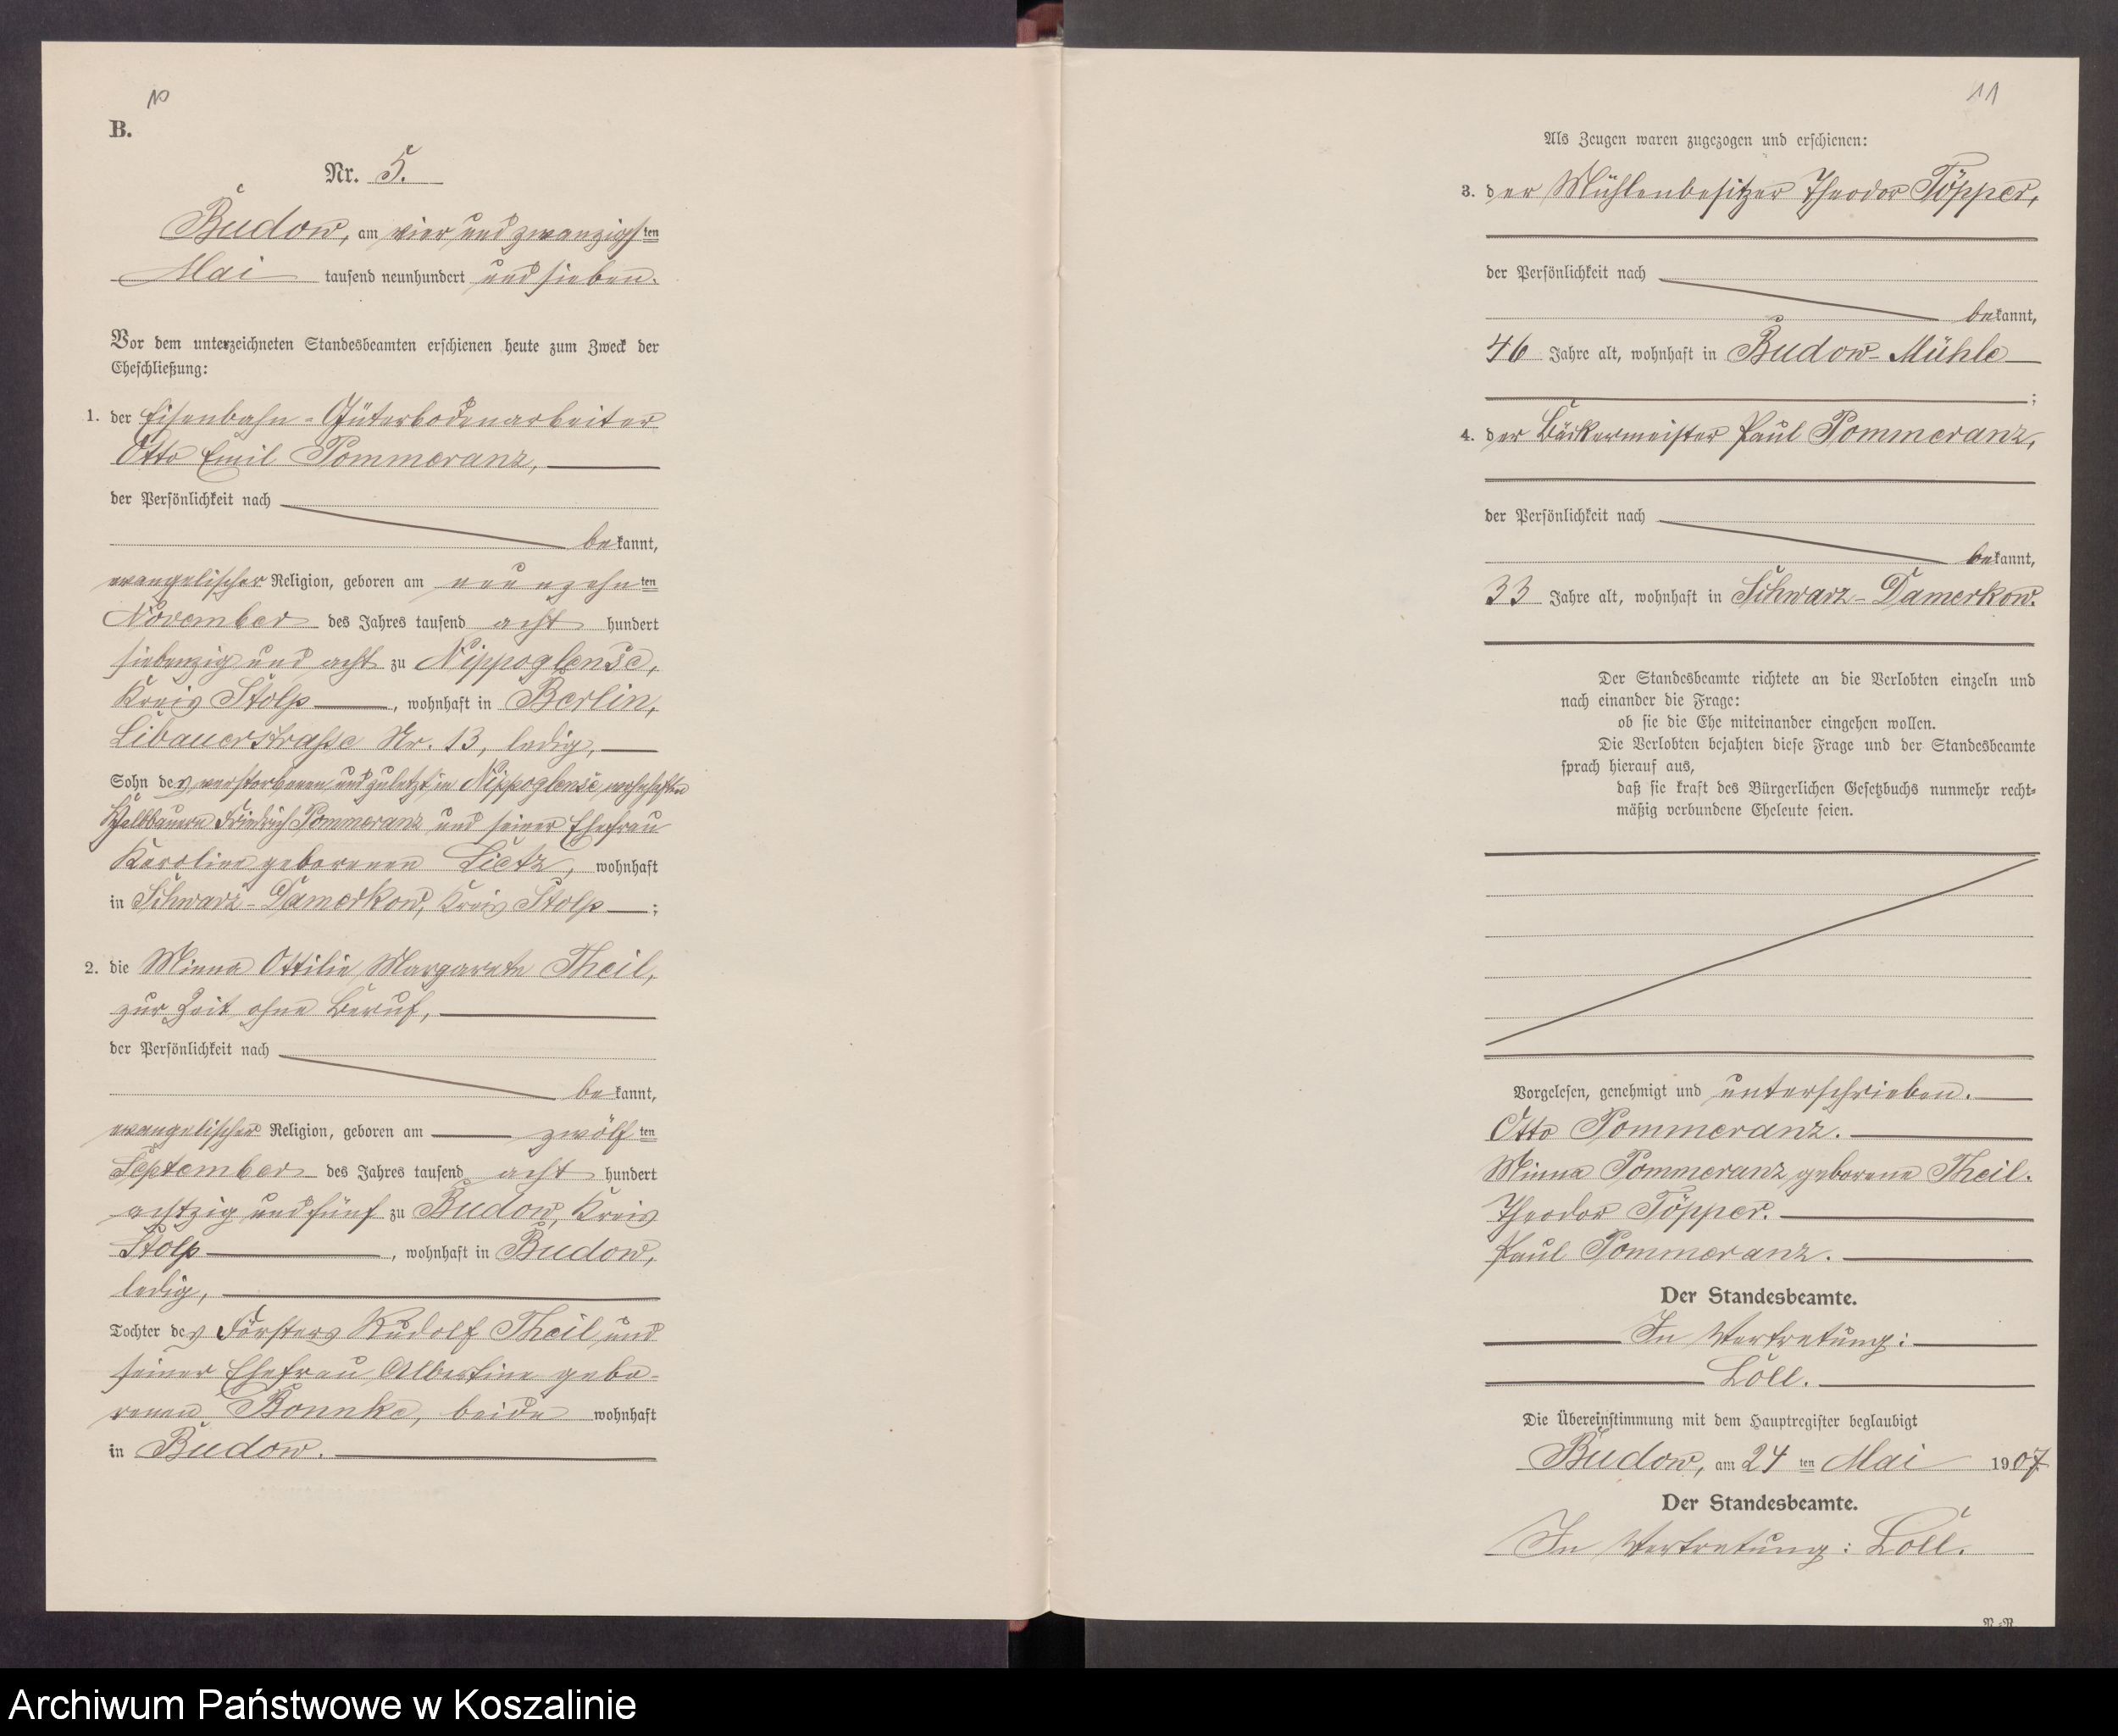 10
B.
Nr. 5.
Budow, am vier und zwanzigsten
Mai tausend neunhundert und sieben.
Vor dem unterzeichneten Standesbeamten erschienen heute zum Zweck der
Eheschließung:
1. der Eisenbahn-Güterbodenarbeiter
Otto Emil Pommeranz,
der Persönlichkeit nach
bekannt,
evangelischer Religion, geboren am neunzehnten
November des Jahres tausend acht hundert
siebenzig und acht zu Nippoglense,
Kreis Stolp, wohnhaft in Berlin,
Libauerstraße Nr. 13, ledig,
Sohn des verstorbenen und zuletzt in Nippoglense wohnhaften
Halbbauern Friedrich Pommeranz und seiner Ehefrau
Karoline geborenen Lietz, wohnhaft
in Schwarz-Damerkow, Kreis Stolp;
2. die Minna Ottilie Margarete Theil,
zur Zeit ohne Beruf,
der Persönlichkeit nach
bekannt,
evangelischer Religion, geboren am zwölften
September des Jahres tausend acht hundert
achtzig und fünf zu Budow, Kreis
Stolp, wohnhaft in Budow,
ledig,
Tochter des Försters Rudolf Theil und
seiner Ehefrau Albertine gebo-
renen Bonnke, beide wohnhaft
in Budow.
11
Als Zeugen waren zugezogen und erschienen:
3. der Mühlenbesitzer Theodor Töpper,
der Persönlichkeit nach
bekannt,
46 Jahre alt, wohnhaft in Budow-Mühle
;
4. der Bäckermeister Paul Pommeranz,
der Persönlichkeit nach
bekannt,
33 Jahre alt, wohnhaft in Schwarz-Damerkow.
Der Standesbeamte richtete an die Verlobten einzeln und
nach einander die Frage:
ob sie die Ehe miteinander eingehen wollen.
Die Verlobten bejahten diese Frage und der Standesbeamte
sprach hierauf aus,
daß sie kraft des Bürgerlichen Gesetzbuchs nunmehr recht-
mäßig verbundene Eheleute seien.
Vorgelesen, genehmigt und unterschrieben.
Otto Pommeranz.
Minna Pommeranz geborene Theil.
Theodor Töpper.
Paul Pommeranz.
Der Standesbeamte.
In Vertretung:
Löll.
Die Übereinstimmung mit dem Hauptregister beglaubigt
Budow, am 24 ten Mai 1907
Der Standesbeamte.
In Vertretung: Löll.
Archiwum Państwowe w Koszalinie